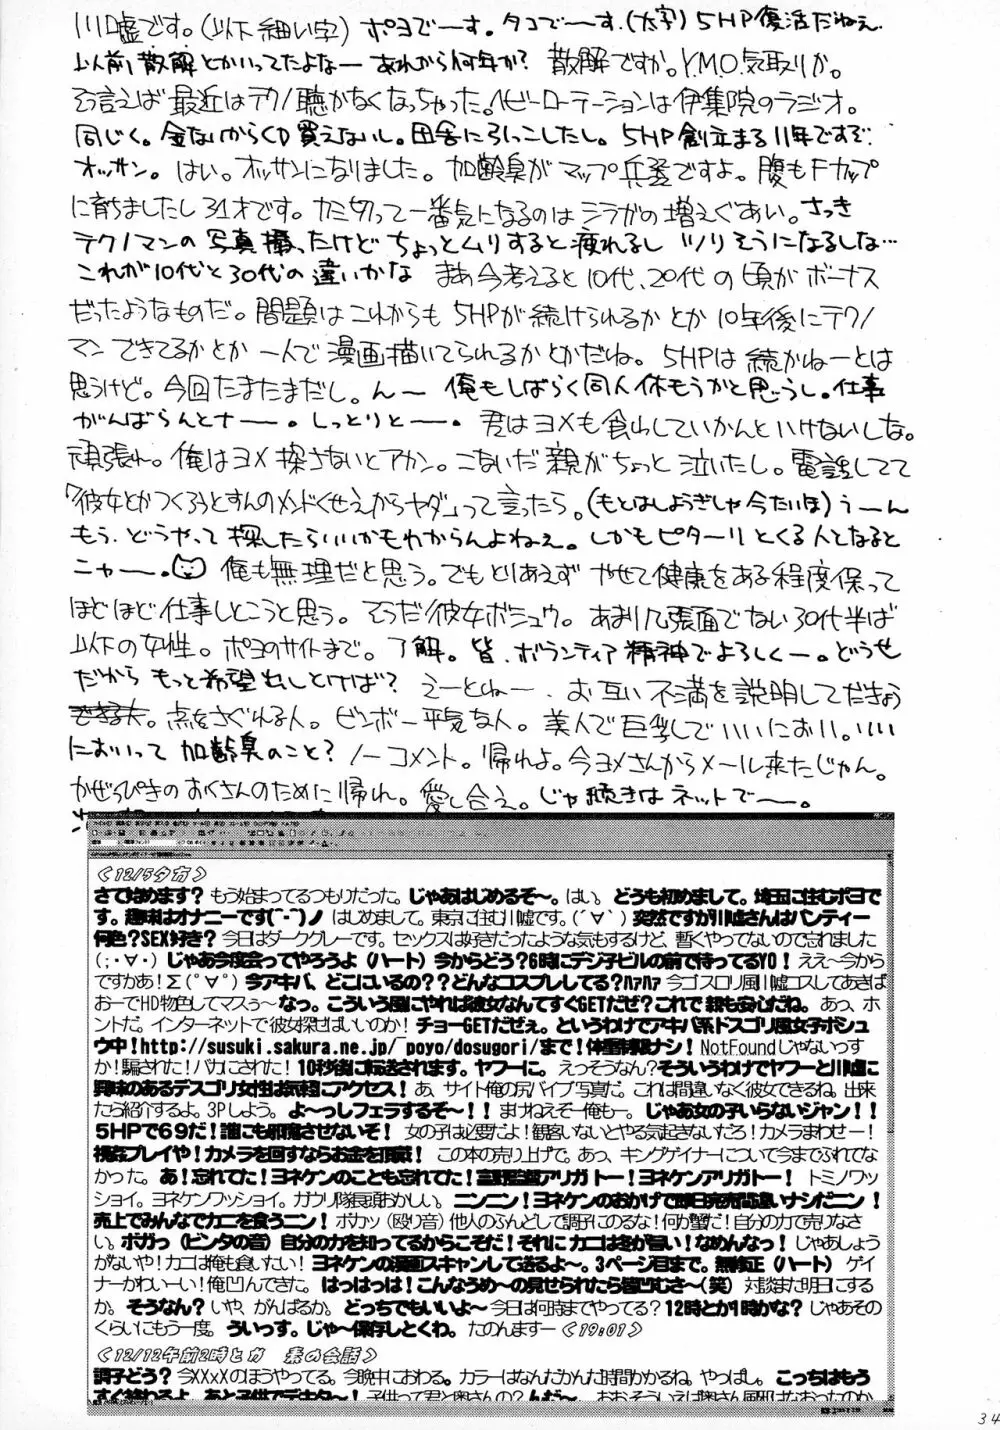 川嘘です。(以下細い字) ポヨでーす。タコでーす.(太字) 5HP復活だねぇ.
以前、散解とかいってたよなー あれから何年か? 散解ですか。Y.M.O.気取りか。
そう言えば 最近はテクノ聴かなくなっちゃった。ヘビーローテーションは伊集院のラジオ。
同じく。金ないからCD買えないし。田舎に引っこしたし。5HP創立まる11年ですぞ
オッサン。はい。オッサンになりました。加齢臭がマップ兵器ですよ。腹もFカップ
に育ちましたし31才です。カミ切って一番気になるのはシラガの増えぐあい。さっき
テクノマンの写真撮ったけどちょっとムリすると疲れるし ツりそうになるしな…
これが10代と30代の違いかな まあ今考えると10代、20代の頃がボーナス
だったようなものだ。問題はこれからも5HPが続けられるかとか10年後にテクノ
マンできてるかとか一人で漫画描いてられるかとかだね。5HPは続かねーとは
思うけど。今回たまたまだし。んー 俺もしばらく同人休もうかと思うし。仕事
がんばらんとナー。しっとりとー。君はヨメも食わしていかんといけないしな。
頑張れ。俺はヨメ探さないとアカン。こないだ親がちょっと泣いたし。電話してて
「彼女とかつくろうとすんのメンドくせえからヤダ」って言ったら。(もとはしようぎしゃ今たいほ) うーん
もう、どうやって探したらいいかもわからんよねぇ。しかもピターリとくる人となると
ニャー。俺も無理だと思う。でもとりあえず やせて健康をある程度保って
ほどほど仕事しとこうと思う。そうだ彼女ボシュウ。あまり几張面でない30代半ば
以下の女性。ポヨのサイトまで。了解。皆、ボランティア精神でよろしくー。どうせ
だから もっと希望出しとけば? えーとねー、お互い不満を説明してだきょう
点をさぐれる人。ビンボー平気な人。美人で巨乳でいいにおい。いい
においって加齢臭のこと? ノーコメント。帰れよ。今ヨメさんからメール来たじゃん。
かぜっぴきのおくさんのために帰れ。愛し合え。じゃ続きはネットでー。
<12/5夕方>
さて始めます? もう始まってるつもりだった。じゃあはじめるぞ〜。はい。どうも初めまして。埼玉に住むポヨで
す。趣味はオナニーです(^-^)ノ はじめまして。東京に住む川嘘です。(´∀`) 突然ですが川嘘さんはパンティー
何色?SEX好き? 今日はダークグレーです。セックスは好きだったような気もするけど、暫くやってないので忘れました
(;・∀・) じゃあ今度会ってやろうよ (ハート) 今からどう?6時にデジ子ビルの前で待ってるYO! ええ〜今から
ですかあ!Σ(゚∀゚) 今アキバ、どこにいるの??どんなコスプレしてる?ハァハァ 今ゴスロリ風川嘘コスしてあきば
おーでHD物色してマスぅ〜 なっ。こういう風にやれば彼女なんてすぐGETだぜ?これで親も安心だね。あっ、ホ
ントだ。インターネットで彼女探せばいいのか! チョーGETだぜぇ。というわけでアキバ系ドスゴリ風女子ボシュ
ウ中!http://susuki.sakura.ne.jp/~poyo/dosugori/まで!体重制限ナシ! NotFoundじゃないっす
か!騙された!バカにされた! 10秒後に転送されます。ヤフーに。えっそうなん?そういうわけでヤフーと川嘘に
興味のあるデスゴリ女性は気軽にアクセス! あ、サイト俺の尻バイブ写真だ。これは間違いなく彼女できるね。出来
たら紹介するよ。3Pしよう。よ〜っしフェラするぞ〜!! まけねえぞー俺もー。じゃあ女の子いらないジャン!!
5HPで69だ!誰にも邪魔させないぞ! 女の子は必要だよ!観客いないとやる気起きないだろ!カメラまわせー!
視姦プレイや!カメラを回すならお金を頂戴! この本の売り上げで。あっ、キングゲイナーについて今までふれてな
かった。あ!忘れてた!ヨネケンのことも忘れてた!富野監督アリガトー!ヨネケンアリガトー! トミノワッ
ショイ。ヨネケンワッショイ。ガウリ隊長頭おかしい。ニンニン!ヨネケンのおかげで即日完売間違いナシだニン!
売上でみんなでカニを食うニン! ボカッ (殴り音) 他人のふんどしで調子にのるな!何が蟹だ!自分の力で売りなさ
い。ボガっ (ビンタの音) 自分の力を知ってるからこそだ!それに カニは冬が旨い!なめんなっ! じゃあしょう
がないや!カニは俺も食いたい! ヨネケンの漫画スキャンして送るよ〜。3ページ目まで。無修正 (ハート) ゲイ
ナーかわいーい!俺凹んできた。はっはっは!こんなうめ〜の見せられたら皆凹むさ〜(笑) 対談また明日にする
か。そうなん? いや、がんばるか。どっちでもいいよ〜 今日は何時までやってる? 12時とか1時かな? じゃあその
くらいにもう一度。ういっす。じゃ〜保存しとくわ。たのんますー <19:01>
<12/12午前2時とか 素の会話>
調子どう? 今XXxXのほうやってる。今晩中におわる。カラーはなんだかんだ時間かかるね。やっぱし。こっちはもう
すぐ終わるよ、あと子供でデキター! 子供って君と奥さんの? んだ〜。おおそういえば奥さん風邪はなおったのか
34